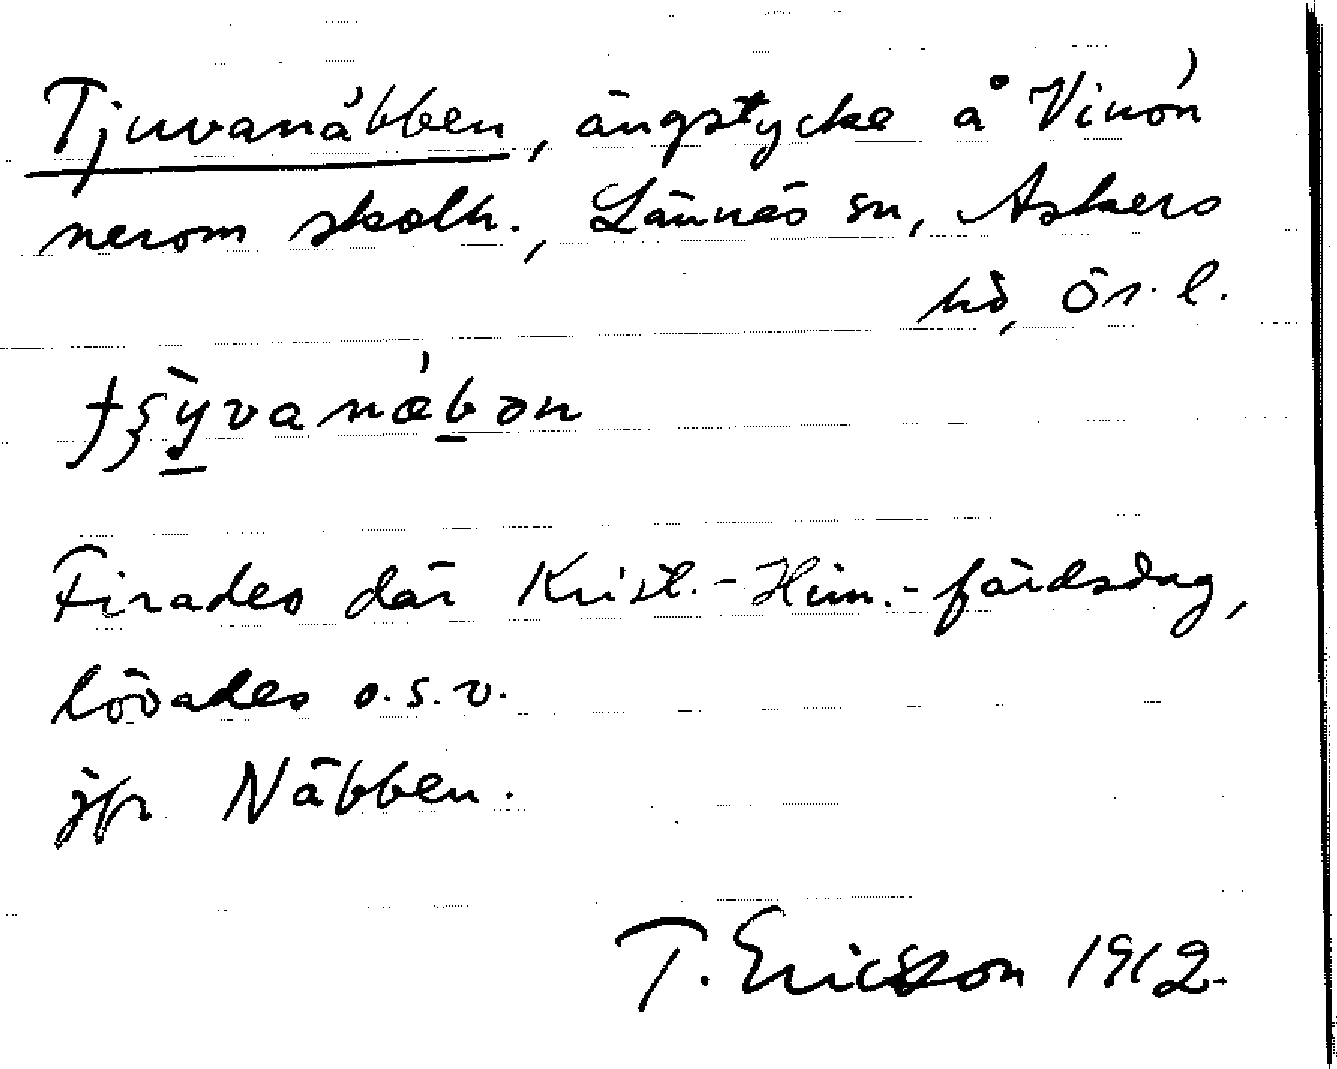 Tjuvanäbben, ängstycke å Vinön
nerom skolh., Lännäs sn, Askers
hd, Ör. l.
Firades där Krist.-Him.-färdsdag,
lövades o.s.v.
jfr Näbben.
T. Ericsson 1912.